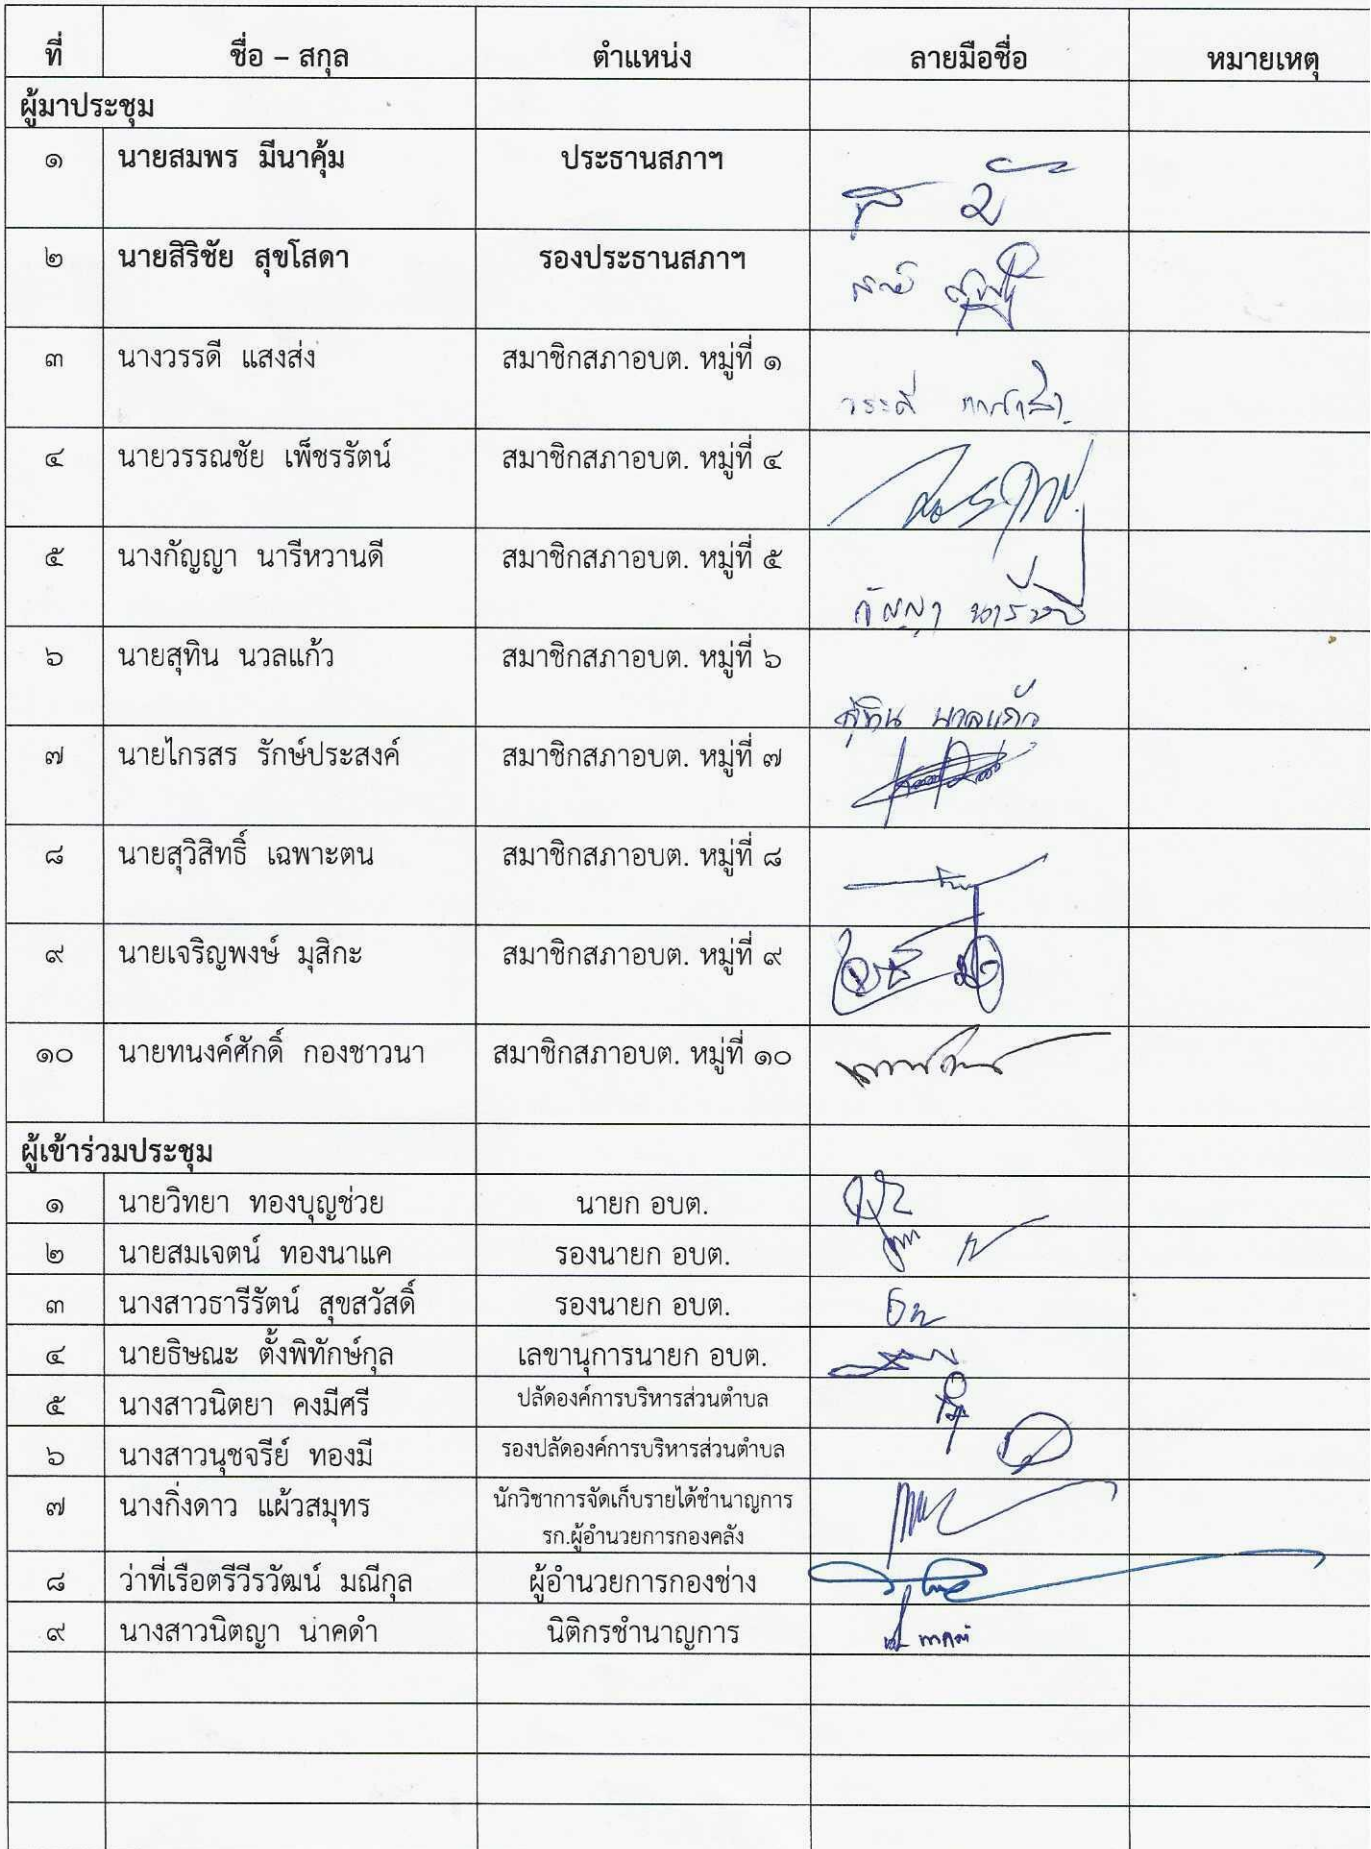 ที่ ชื่อ – สกุล ตำแหน่ง ลายมือชื่อ หมายเหตุ
ผู้มาประชุม
๑ นายสมพร มีนาคุ้ม ประธานสภาฯ
๒ นายสิริชัย สุขโสดา รองประธานสภาฯ
๓ นางวรรดี แสงส่ง สมาชิกสภาอบต. หมู่ที่ ๑
๔ นายวรรณชัย เพ็ชรรัตน์ สมาชิกสภาอบต. หมู่ที่ ๔
๕ นางกัญญา นารีหวานดี สมาชิกสภาอบต. หมู่ที่ ๕
กัญญา
๖ นายสุทิน นวลแก้ว สมาชิกสภาอบต. หมู่ที่ ๖
สุทิน นวลแก้ว
๗ นายไกรสร รักษ์ประสงค์ สมาชิกสภาอบต. หมู่ที่ ๗
๘ นายสุวิสิทธิ์ เฉพาะตน สมาชิกสภาอบต. หมู่ที่ ๘
๙ นายเจริญพงษ์ มุสิกะ สมาชิกสภาอบต. หมู่ที่ ๙
๑๐ นายทนงค์ศักดิ์ กองชาวนา สมาชิกสภาอบต. หมู่ที่ ๑๐
ผู้เข้าร่วมประชุม
๑ นายวิทยา ทองบุญช่วย นายก อบต.
๒ นายสมเจตน์ ทองนาแค รองนายก อบต.
๓ นางสาวธารีรัตน์ สุขสวัสดิ์ รองนายก อบต.
๔ นายธิษณะ ตั้งพิทักษ์กุล เลขานุการนายก อบต.
๕ นางสาวนิตยา คงมีศรี ปลัดองค์การบริหารส่วนตำบล
๖ นางสาวนุชจรีย์ ทองมี รองปลัดองค์การบริหารส่วนตำบล
๗ นางกิ่งดาว แผ้วสมุทร นักวิชาการจัดเก็บรายได้ชำนาญการ
รก.ผู้อำนวยการกองคลัง
๘ ว่าที่เรือตรีวีรวัฒน์ มณีกุล ผู้อำนวยการกองช่าง
๙ นางสาวนิตญา น่าคดำ นิติกรชำนาญการ